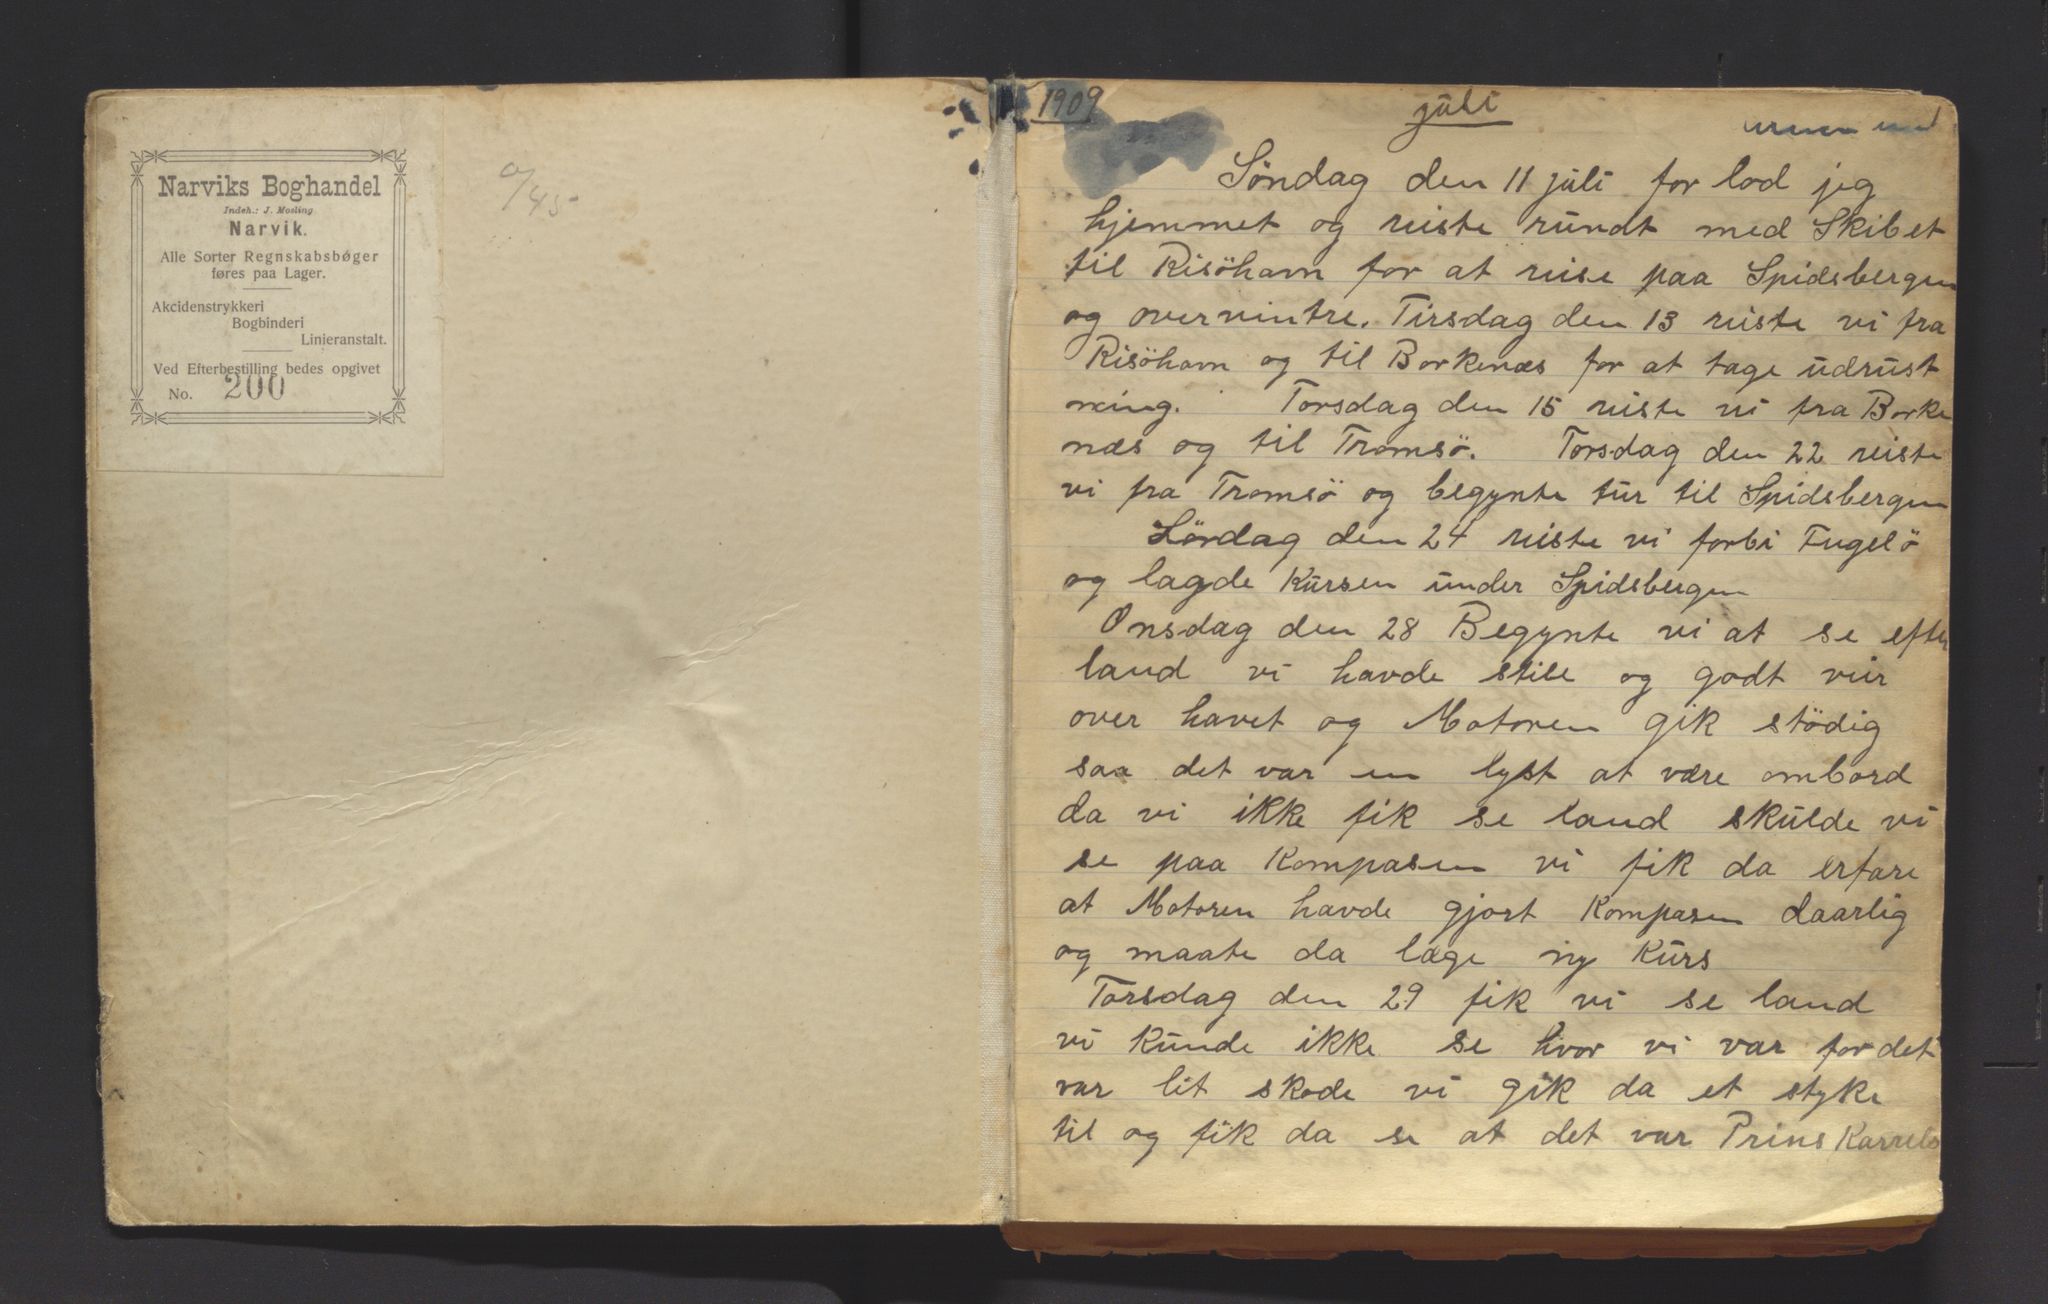 Narviks Boghandel
Indeh.: J. Mosling
Narvik.
Alle Sorter Regnskabsbøger
føres paa Lager.
Akcidenstrykkeri
Bogbinderi
Linieranstalt.
Ved Efterbestilling bedes opgivet
No. 200
1909
juli
Söndag den 11 juli for lod jeg
hjemmet og reiste rundt med Skibet
til Risöhavn for at reise paa Spidsbergen
og overvintre. Tirsdag den 13 reiste vi fra
Risöhavn og til Borkenæs for at tage udrust
ning. Torsdag den 15 reiste vi fra Borke
næs og til Tromsö. Torsdag den 22 reiste
vi fra Tromsö og begynte tur til Spidsbergen
Lördag den 24 reiste vi forbi Fugelö
og lagde Kursen under Spidsbergen
Onsdag den 28 Begynte vi at se efter
land vi havde stile og godt veir
over havet og Motoren gik stödig
saa det var en lyst at være ombord
da vi ikke fik se land skulde vi
se paa Kompasen vi fik da erfare
at Motoren havde gjort Kompasen daarlig
og maate da læge ny Kurs
Torsdag den 29 fik vi se land
vi Kunde ikke se hvor vi var for det
var lit skode vi gik da et styke
til og fik da se at det var Prins Karrels